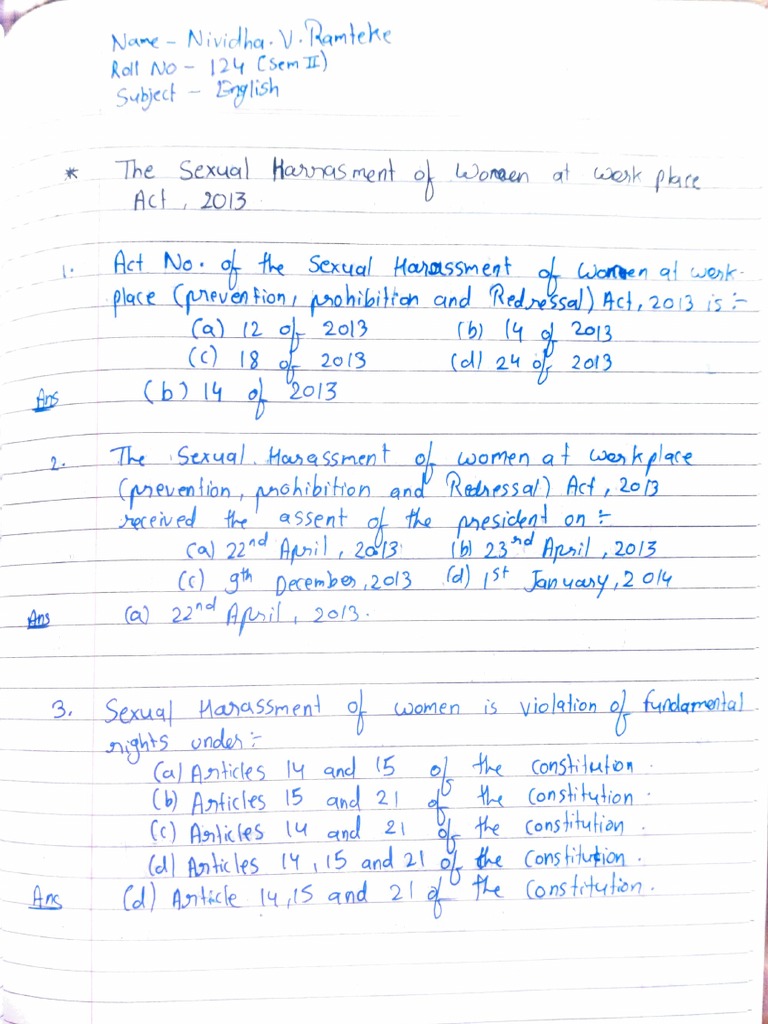 Name - Nividha. V. Ramteke
Roll No - 124 (Sem II)
Subject - English
* The Sexual Harrasment of Women at work place
Act, 2013
1. Act No. of the Sexual Harassment of women at work-
place (prevention, prohibition and Redressal) Act, 2013 is :-
(a) 12 of 2013 (b) 14 of 2013
(c) 18 of 2013 (d) 24 of 2013
Ans (b) 14 of 2013
2. The Sexual Harassment of women at workplace
(prevention, prohibition and Redressal) Act, 2013
received the assent of the president on :-
(a) 22nd April, 2013. (b) 23rd April, 2013
(c) 9th December, 2013 (d) 1st January, 2014
Ans (a) 22nd April, 2013.
3. Sexual Harassment of women is violation of fundamental
rights under :-
(a) Articles 14 and 15 of the constitution.
(b) Articles 15 and 21 of the constitution.
(c) Articles 14 and 21 of the constitution.
(d) Articles 14, 15 and 21 of the constitution.
Ans (d) Article 14, 15 and 21 of the constitution.